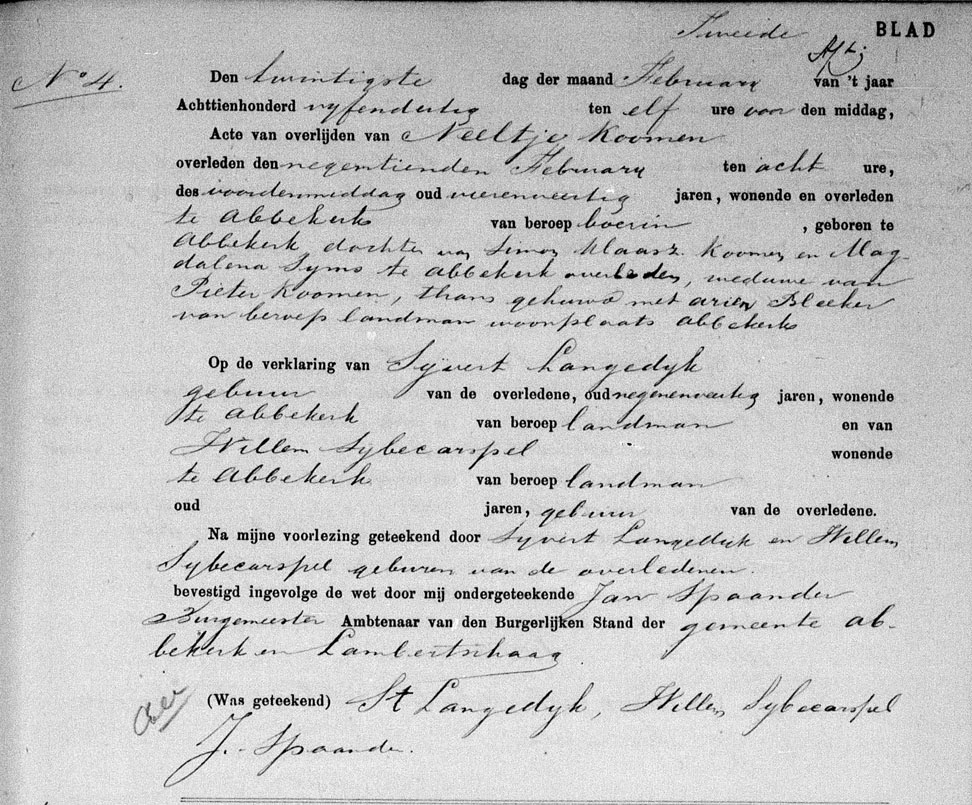 Tweede BLAD
No 4. Den twintigste dag der maand February van 't jaar
Achttienhonderd vyfendertig ten elf ure voor den middag,
Acte van overlijden van Neeltje Koomen
overleden den negentienden February ten acht ure,
des voordenmiddag oud vierenveertig jaren, wonende en overleden
te Abbekerk van beroep boerin , geboren te
Abbekerk dochter van Simon Klaasz Koomen en Mag-
dalena Syms te Abbekerk overleden, weduwe van
Pieter Koomen, thans gehuwd met Arien Bleeker
van beroep landman woonplaats Abbekerk
Op de verklaring van Syvert Langedyk
gebuur van de overledene, oud negenenveertig jaren, wonende
te Abbekerk van beroep landman en van
Willem Sybecarspel wonende
te Abbekerk van beroep landman
oud jaren, gebuur van de overledene.
Na mijne voorlezing geteekend door Syvert Langedyk en Willem
Sybecarspel geburen van de overledenen.
bevestigd ingevolge de wet door mij ondergeteekende Jan Spaander
Burgemeester Ambtenaar van den Burgerlijken Stand der gemeente Ab-
bekerk en Lambertschaag
(Was geteekend) St Langedyk, Willem Sybecarspel
J. Spaander.